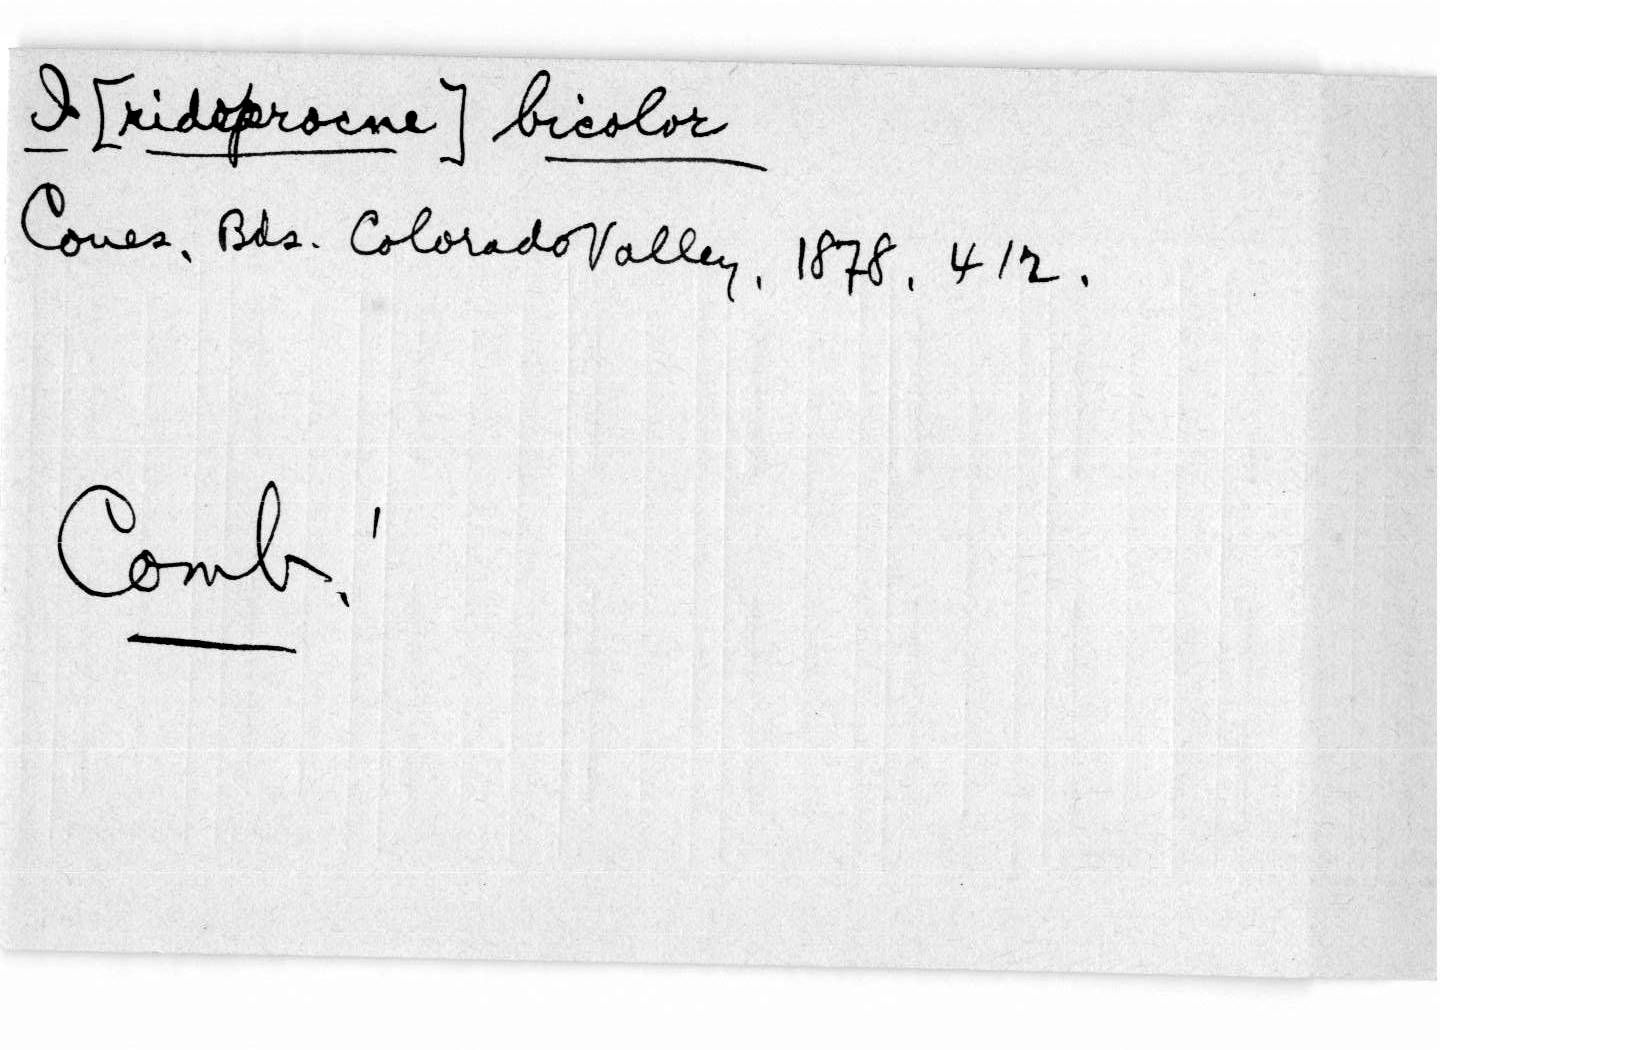 I[ridoprocne] bicolor
Coues, Bds. Colorado Valley, 1878, 412.
Comb.!